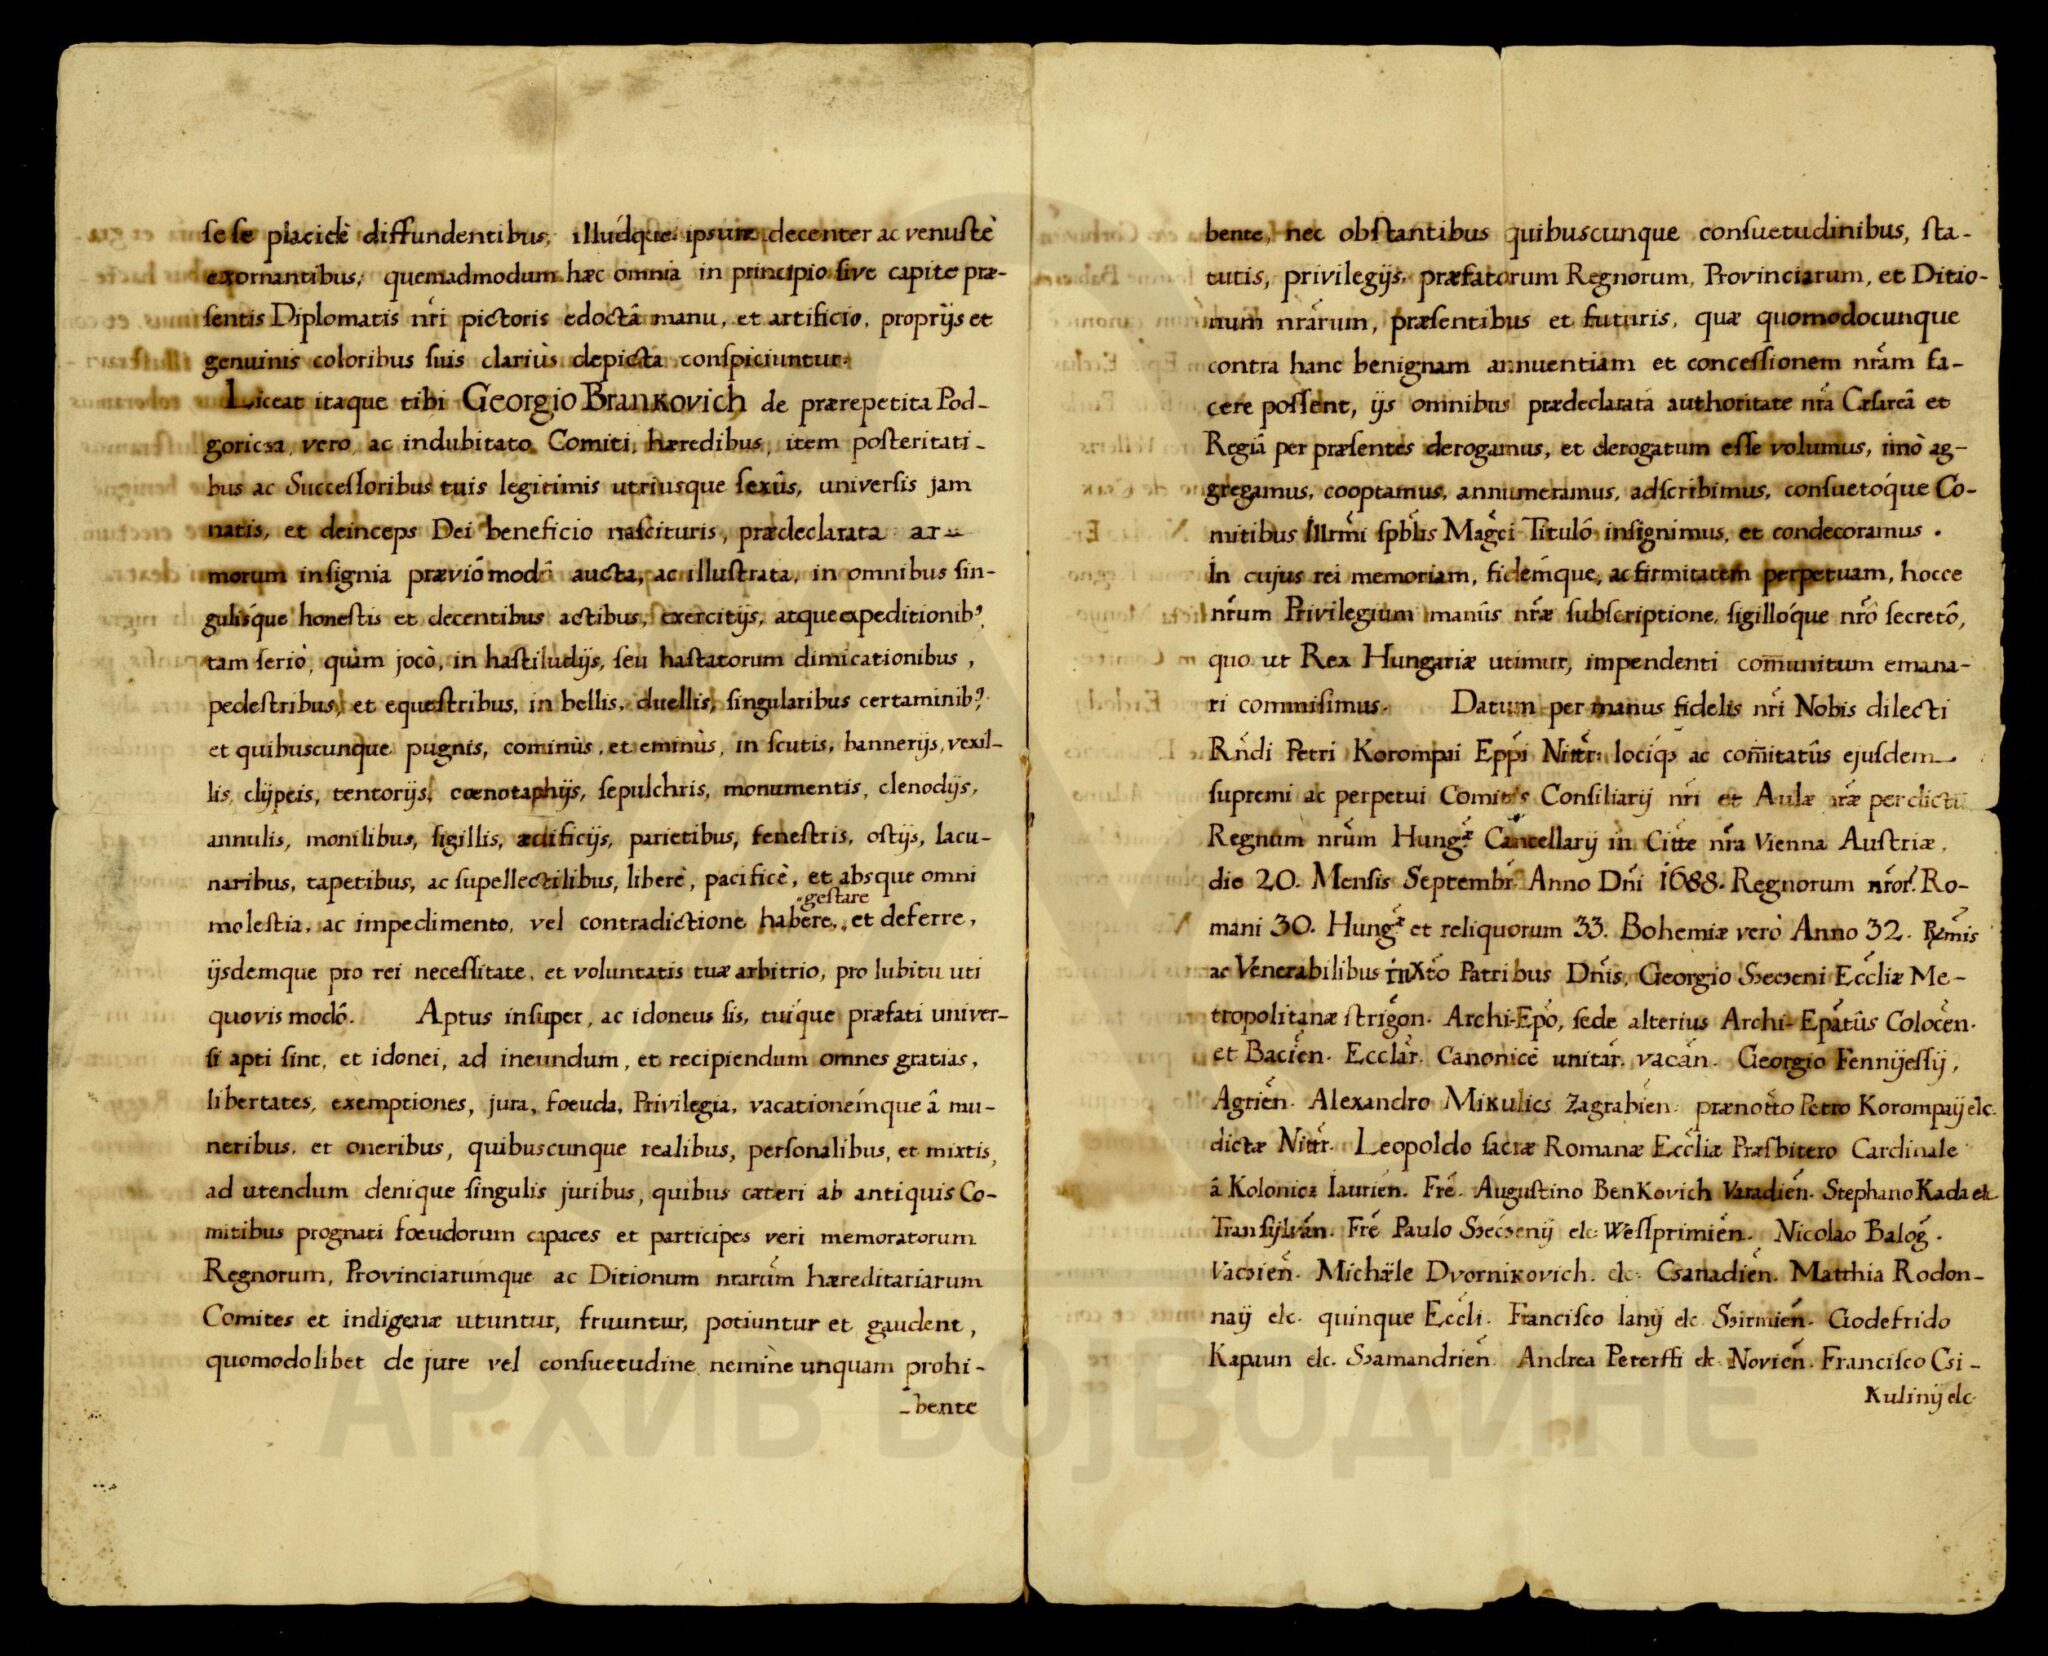 seſe placidè diffundentibus, illúdque ipsum decenter ac venuſtè
exornantibus, quemadmodum hæc omnia in principio ſive capite præ-
ſentis Diplomatis nr̃i pictoris edoctâ manu, et artificio, proprijs et
genuinis coloribus ſuis clariùs depicta conſpiciuntur.
Liceat itaque tibi Georgio Brankovich de prærepetita Pod-
goricza, vero, ac indubitato Comiti, hæredibus, item poſteritati-
bus ac Succeſſoribus tuis legitimis utriusque ſexûs, univerſis jam
natis, et deinceps Dei beneficio naſcituris, prædeclarata ar-
morum inſignia præviô modô aucta, ac illuſtrata, in omnibus ſin-
gulisque honeſtis et decentibus actibus, exercitijs, atque expeditionib9,
tam ſeriò, quàm jocò, in haſtiludijs, ſeu haſtatorum dimicationibus,
pedeſtribus, et equeſtribus, in bellis, duellis, ſingularibus certaminib9
et quibuscunque pugnis, cominùs, et eminùs, in ſcutis, bannerijs, vexil-
lis, clijpeis, tentorijs, cœnotaphijs, ſepulchris, monumentis, clenodijs,
annulis, monilibus, ſigillis, ædificijs, parietibus, feneſtris, oſtijs, lacu-
naribus, tapetibus, ac ſupellectilibus, liberè, pacificè, et absque omni
geſtare
moleſtia, ac impedimento, vel contradictione habere, et deferre,
ijsdemque pro rei neceſſitate, et voluntatis tuæ arbitrio, pro lubitu uti
quovis modô. Aptus inſuper, ac idoneus ſis, tuíque præfati univer-
ſi apti ſint, et idonei, ad ineundum, et recipiendum omnes gratias,
libertates, exemptiones, jura, fœuda, Privilegia, vacationeḿque â mu-
neribus, et oneribus, quibuscunque realibus, perſonalibus, et mixtis,
ad utendum denique ſingulis juribus, quibus cæteri ab antiquis Co-
mitibus prognati fœudorum capaces et participes veri memoratorum
Regnorum, Provinciarumque ac Ditionum nrarum̃ hæreditariarum
Comites et indigenæ utuntur, fruuntur, potiuntur et gaudent,
quomodolibet de jure vel conſuetudine, nemine unquam prohi-
-bente
bente, nec obſtantibus quibuscunque conſuetudinibus, ſta-
tutis, privilegijs, præfatorum Regnorum, Provinciarum, et Ditio-
num nrãrum, præſentibus et futuris, quæ quomodocunque
contra hanc benignam annuentiam et conceſſionem nrãm fa-
cere poſſent, ijs omnibus prædeclarata authoritate nrã Cæſareâ et
Regiâ per præſentes derogamus, et derogatum eſſe volumus, imò ag-
gregamus, cooptamus, annumeramus, adſcribimus, conſuetóque Co-
mitibus Illrmĩ ſpblĩs Magcĩ Titulô inſignimus, et condecoramus.
In cujus rei memoriam, fidémque, ac firmitatem perpetuam, hocce
nrũm Privilegium manûs nrẽ ſubſcriptione, ſigillóque nrõ ſecretô,
quo ut Rex Hungariæ utimur, impendenti com̃unitum emana-
ri commiſimus. Datum per manus fidelis nrĩ Nobis dilecti
Rñdi Petri Korompai Eppĩ Nittr̃: lociq3 ac com̃itatûs ejuſdem
ſupremi ac perpetui Comitis Conſiliarij nrĩ et Aulæ nræ per dictũ
Regnum nrũm Hungæ Cancellarij in Citte nrã Vienna Auſtriæ,
die 20. Menſis Septembr̃. Anno Dnĩ 1688. Regnorum nror̃. Ro-
mani 30. Hungæ et reliquorum 33. Bohemiæ verò Anno 32. Rm̃is
ac Venerabilibus in Xto Patribus Dnĩs, Georgio Szeczeni Eccliæ Me-
tropolitanæ ſtrigon̄. Archi-Epõ, ſede alterius Archi-Epãtûs Colocẽn.
et Bacien̄. Ecclar̃. Canonicè unitar̃. vacan̄. Georgio Fennijeſſij,
Agrien̄. Alexandro Mikulics Zagrabien̄. prænotto Petro Korompaij etc.
dictæ Nittr̃. Leopoldo ſacræ Romanæ Eccliæ Præſbitero Cardinale
â Kolonicz Iaurien̄. Frẽ. Auguſtino Benkovich Varadien̄. Stephano Kada etc.
Tranſijlvãn. Frẽ Paulo Szeczenij etc: Weſſprimien̄. Nicolao Balog̃.
Vaczien̄. Michäele Dvornikovich. etc. Csanadien̄. Matthia Rodon-
naij etc. quinque Eccli. Franciſco Ianij etc. Szirmien̄. Godefrido
Kapaun etc. Szamandrien̄. Andrea Peterffi etc. Novien̄. Franciſco Csi-
Kulinij etc.
АРХИВ ВОЈВОДИНЕ